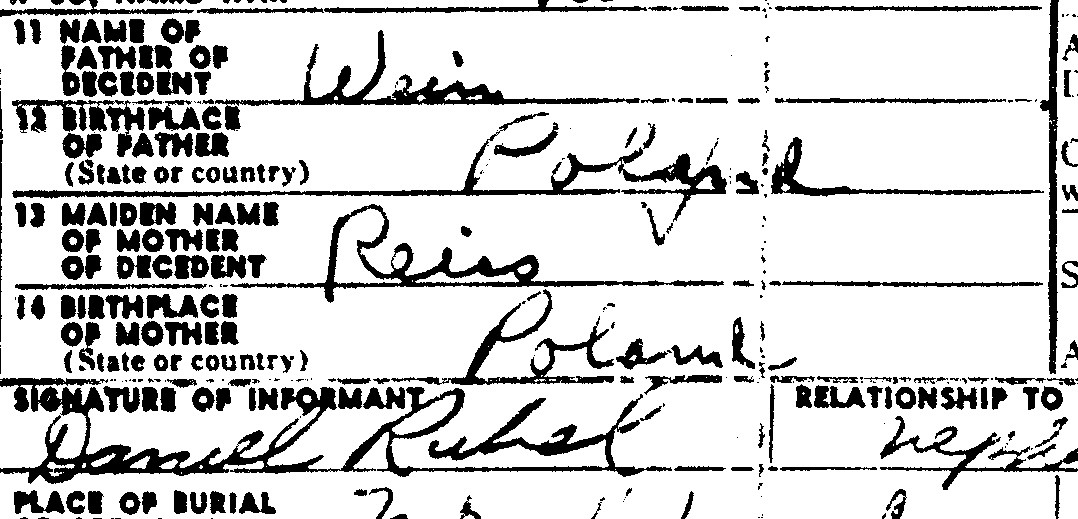 11 NAME OF
FATHER OF
DECEDENT Wein
12 BIRTHPLACE
OF FATHER
(State or country) Poland
13 MAIDEN NAME
OF MOTHER
OF DECEDENT Reiss
14 BIRTHPLACE
OF MOTHER
(State or country) Poland
SIGNATURE OF INFORMANT RELATIONSHIP TO
Daniel
PLACE OF BURIAL